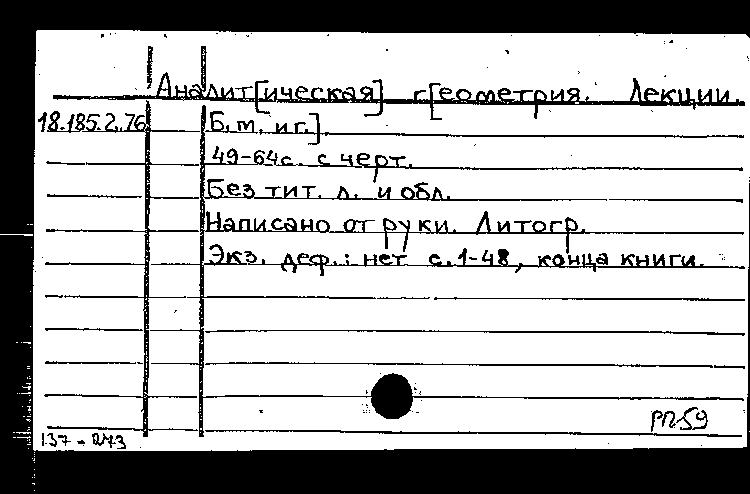 Аналит[ическая] г[еометрия. Лекции.
18.185.2.76 Б.т. и г.].
49-64с. с черт.
Без тит. л. и обл.
Написано от руки. Литогр.
Экз. деф.: нет с. 1-48, конца книги.
РП59
137-243